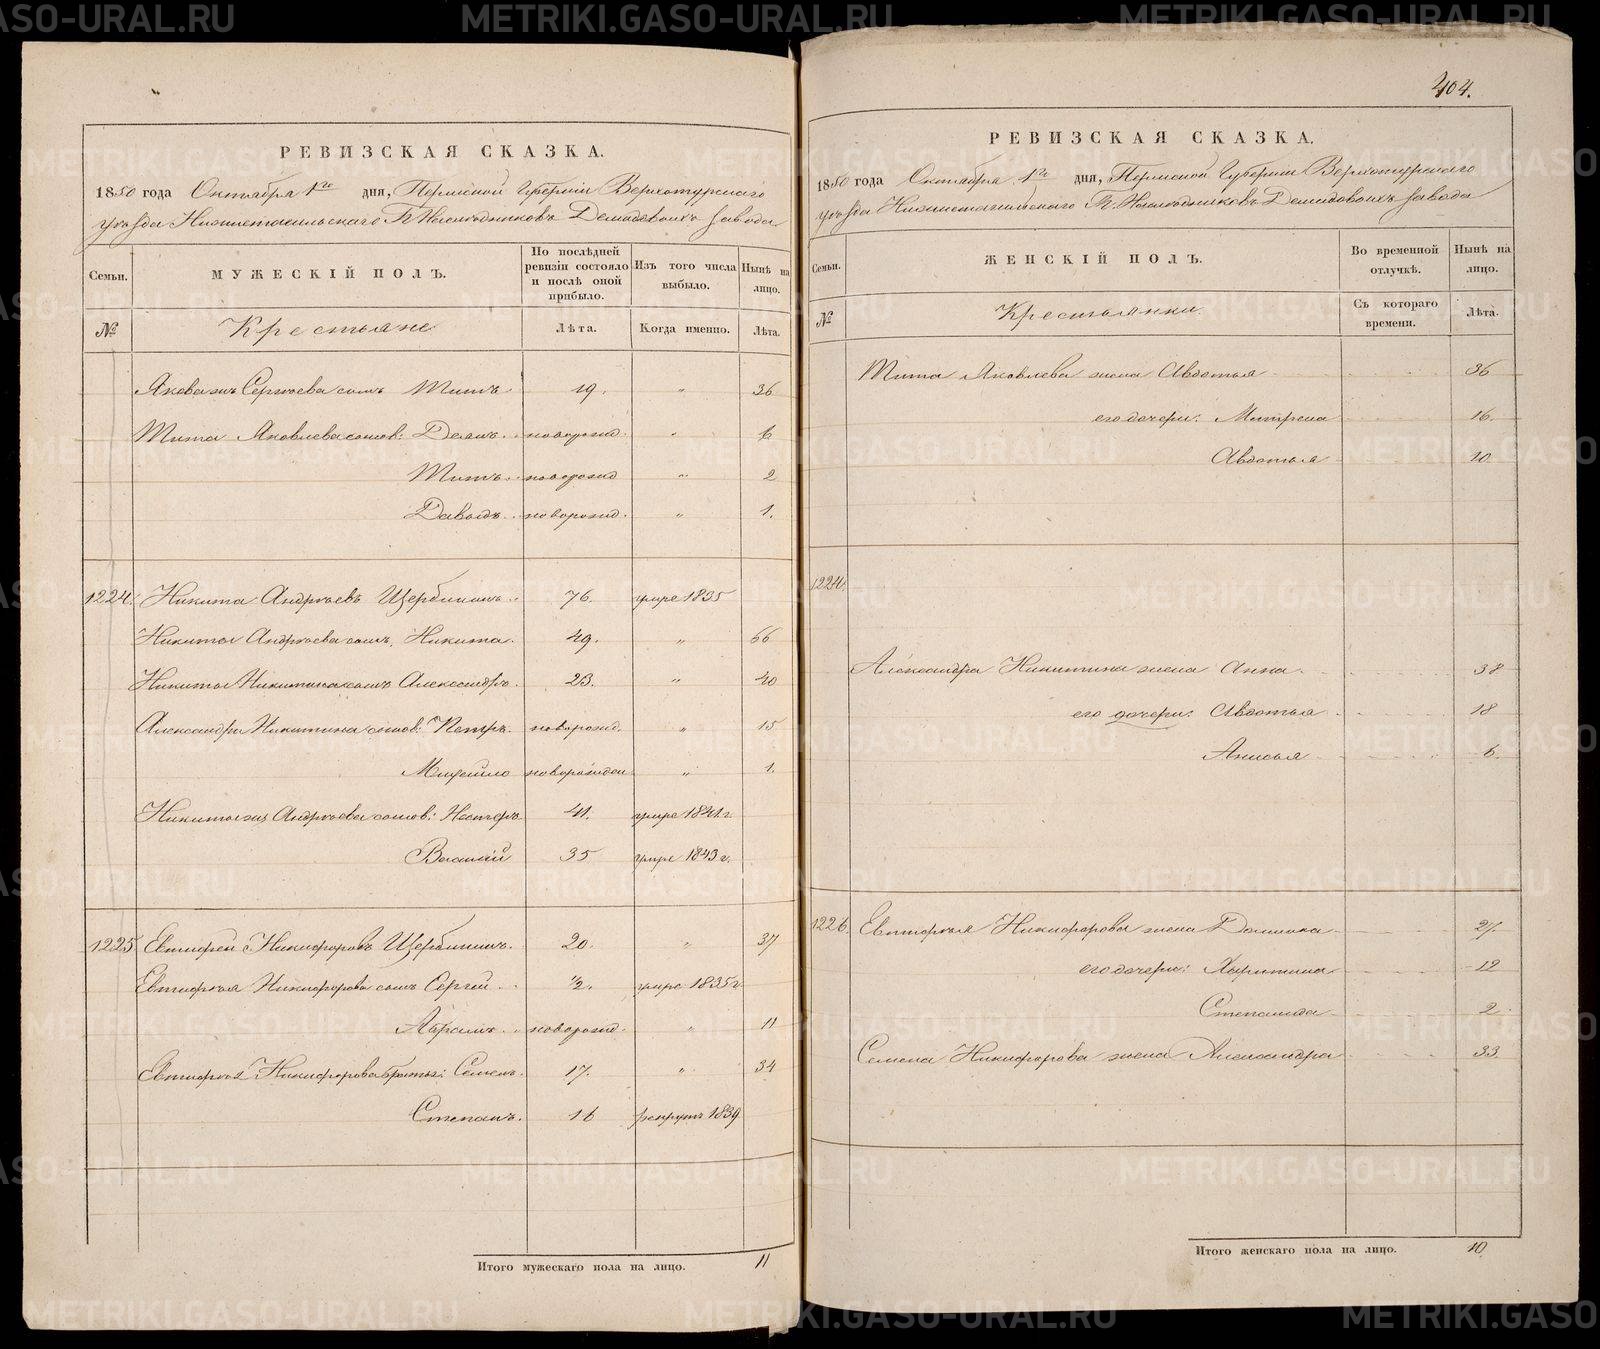 РЕВИЗСКАЯ СКАЗКА.
1850 года Октября 1го дня, Пермской Губернии Верхотурскаго
уѣзда Нижнетагильскаго Г. Наслѣдниковъ Демидовыхъ завода
Семьи. МУЖЕСКІЙ ПОЛЪ. По послѣдней ревизіи состояло и послѣ оной прибыло. Изъ того числа выбыло. Нынѣ на лицо.
№ Крестьяне Лѣта. Когда именно. Лѣта.
Якова Сергѣева сынъ Титъ 19. " 36
Тита Яковлева сынов: Демидъ новорожд. " 6
Титъ новорожд " 2
Давыдъ новорожд. " 1.
1224. Никита Андрѣевъ Щербининъ 76. умре 1835
Никиты Андрѣева сынъ, Никита. 49. " 66
Никиты Никитина сынъ Александръ. 23. " 40
Александра Никитина сынов: Петръ. новорожд. " 15
Михайло новорожден " 1.
Никиты Андрѣева сынов: Нестеръ 41. умре 1841 г.
Василій 35 умре 1843 г.
1225 Евтифей Никифоровъ Щербининъ. 20. " 37
Евтифѣя Никифорова сынъ Сергѣй ½. умре 1835 г
Абрамъ новорожд. " 11
Евтифѣя Никифорова братья: Семенъ. 17. " 34
Степанъ. 16 рекрутъ 1839
Итого мужескаго пола на лицо. 11
404.
РЕВИЗСКАЯ СКАЗКА.
1850 года Октября 1го дня, Пермской Губерніи Верхотурскаго
уѣзда Нижнетагильскаго Г. Наслѣдниковъ Демидовыхъ завода
Семьи. ЖЕНСКІЙ ПОЛЪ. Во временной отлучкѣ. Нынѣ на лицо.
№ Крестьянки. Съ котораго времени. Лѣта.
Тита Яковлева жена Авдотья 36
его дочери: Матрена 16.
Авдотья 10
1224.
Александра Никитина жена Анна 38
его дочери: Авдотья 18
Анисья 6.
1226. Евтифѣя Никифорова жена Домника 27.
его дочери: Харитина 12
Степанида 2
Семена Никифорова жена Александра 33.
Итого женскаго пола на лицо. 10.
METRIKI.GASO-URAL.RU